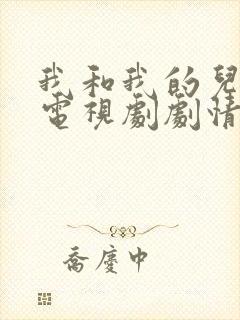 我和我的兒
電視劇劇情
喬慶中